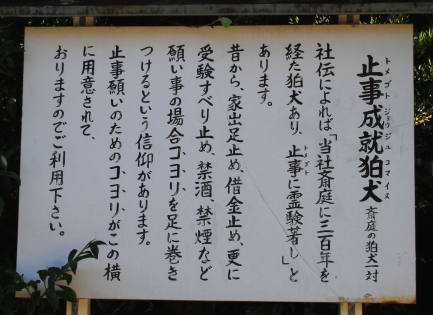 止事成就狛犬 斎庭の狛犬一対
トメゴト ジョウジュ コマイヌ
社伝によれば「当社斎庭に三百年を
経た狛犬あり、止事に霊験著し」と
トメゴト
あります。
昔から、家出足止め、借金止め、更に
受験すべり止め、禁酒、禁煙など
願い事の場合コヨリを足に巻き
つけるという信仰があります。
止事願いのためのコヨリがこの横
に用意されて、
おりますのでご利用下さい。